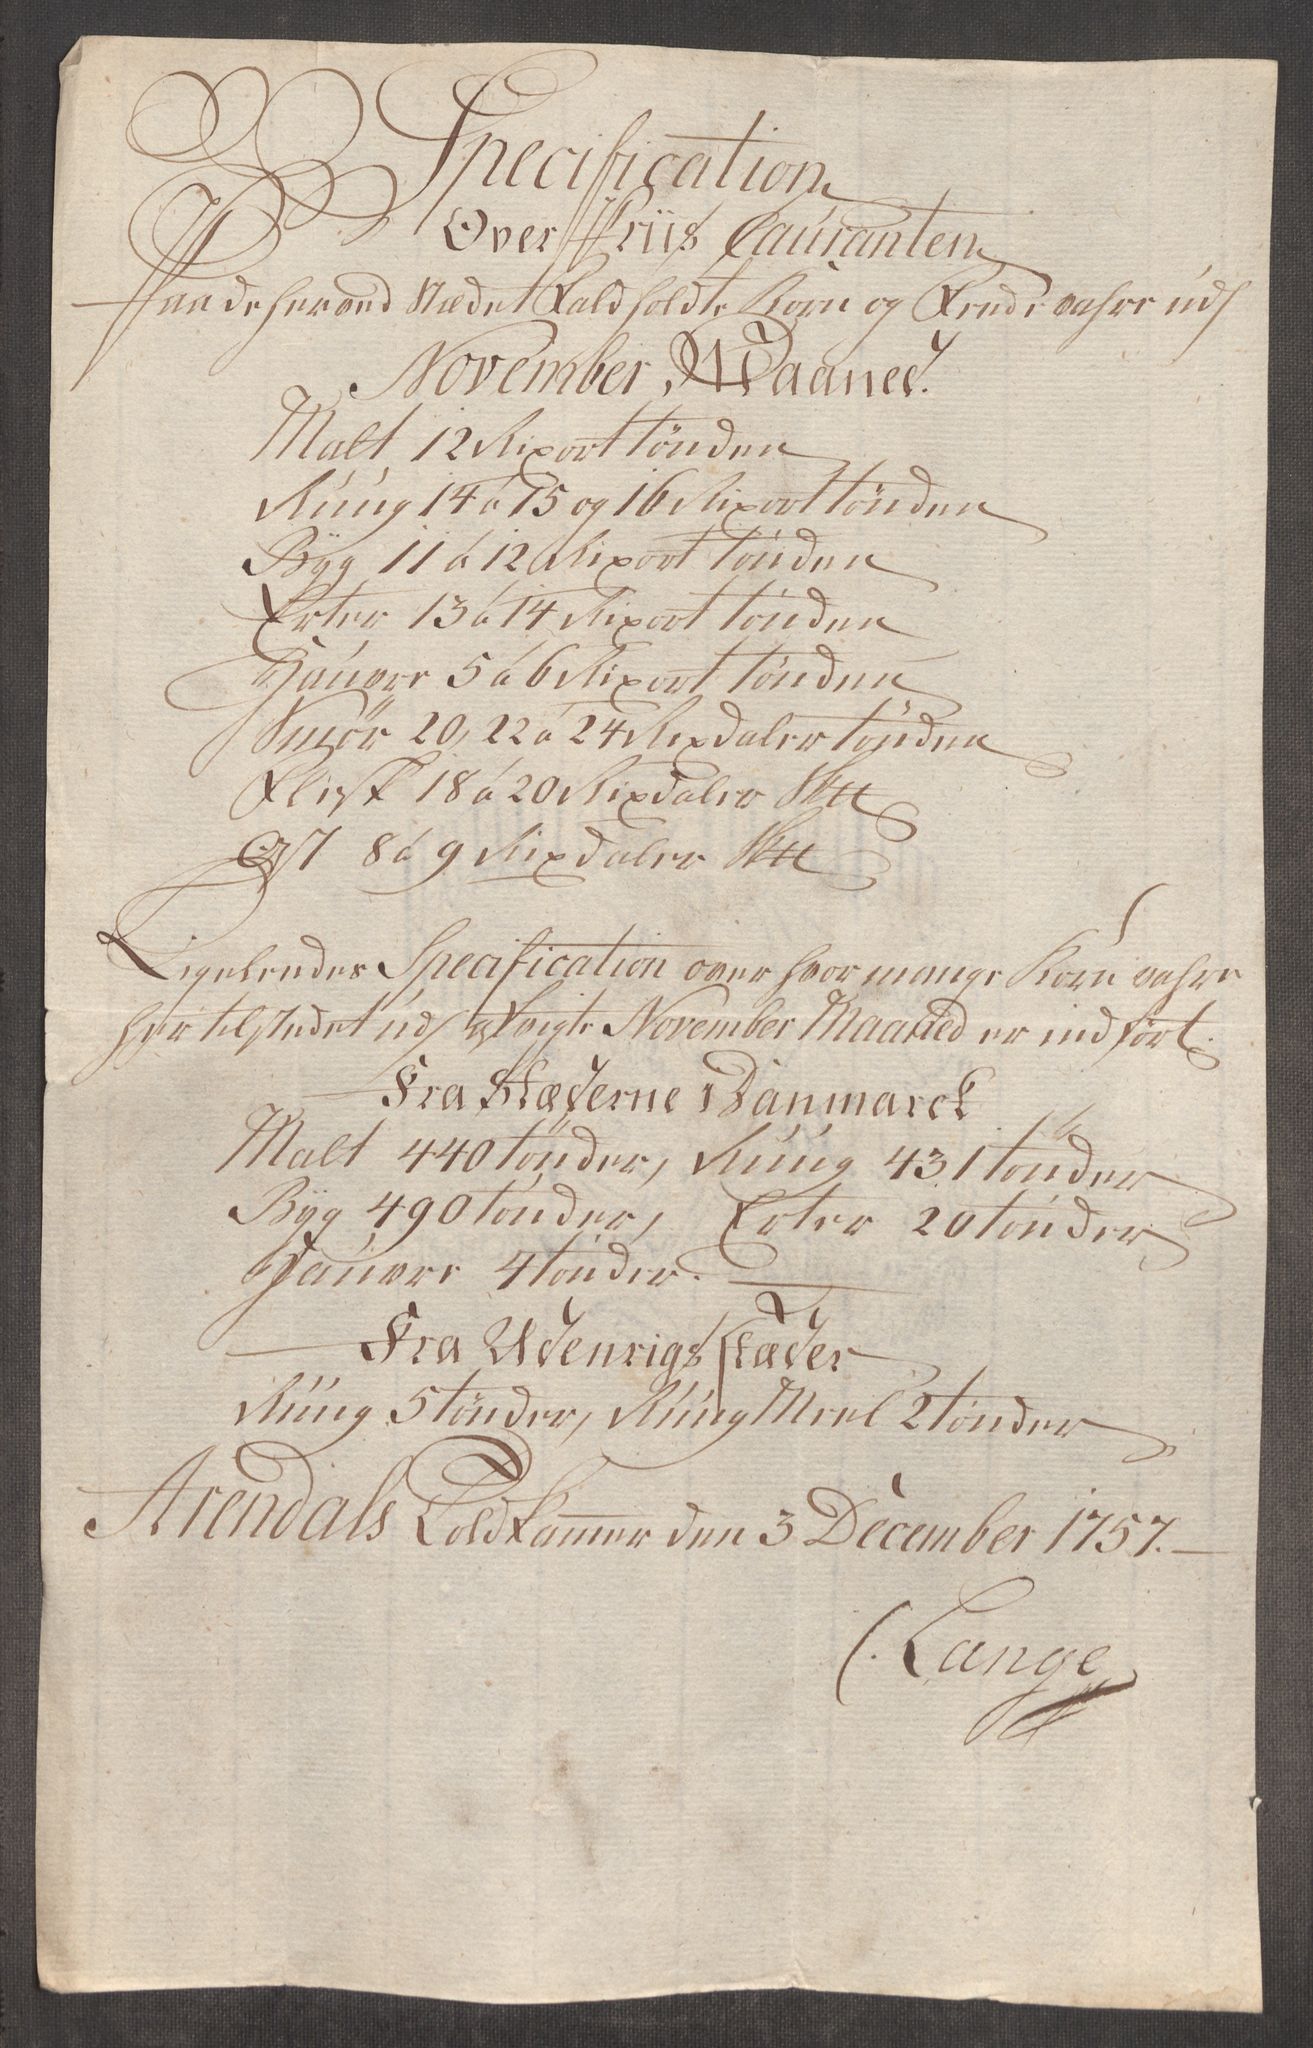 Specification
Over Priis Couranten
Paa de her ved Stædet Faldholdte Korn og Fede vahre udj
November Maaned.
Malt 12 Rixort tönden
Rúúg 14 á 15 og 16 Rixort tönden
Byg 11 á 12 Rixort tönden
Erter 13 á 14 Rixort tönden
Haúvre 5 á 6 Rixort tönden
Smör 20, 22 á 24 Rixdaler tönden
Flesk 18 á 20 Rixdaler
Ost 8 á 9 Rixdaler
Ligeleedes Specification over hvor mange Korn vahre
her til stedet udj November Maaned er indført.
Fra Stæderne i Danmarck
Malt 440 tönder, Rúúg 431 tönder
Byg 490 tönder, Erter 20 tönder
Haúvre 4 tönder.
Fra Udenrigs stæder
Rúúg 5 tönder, Rúúg Meel 2 tönder
Arendals Toldkammer den 3 December 1757.
C. Lange